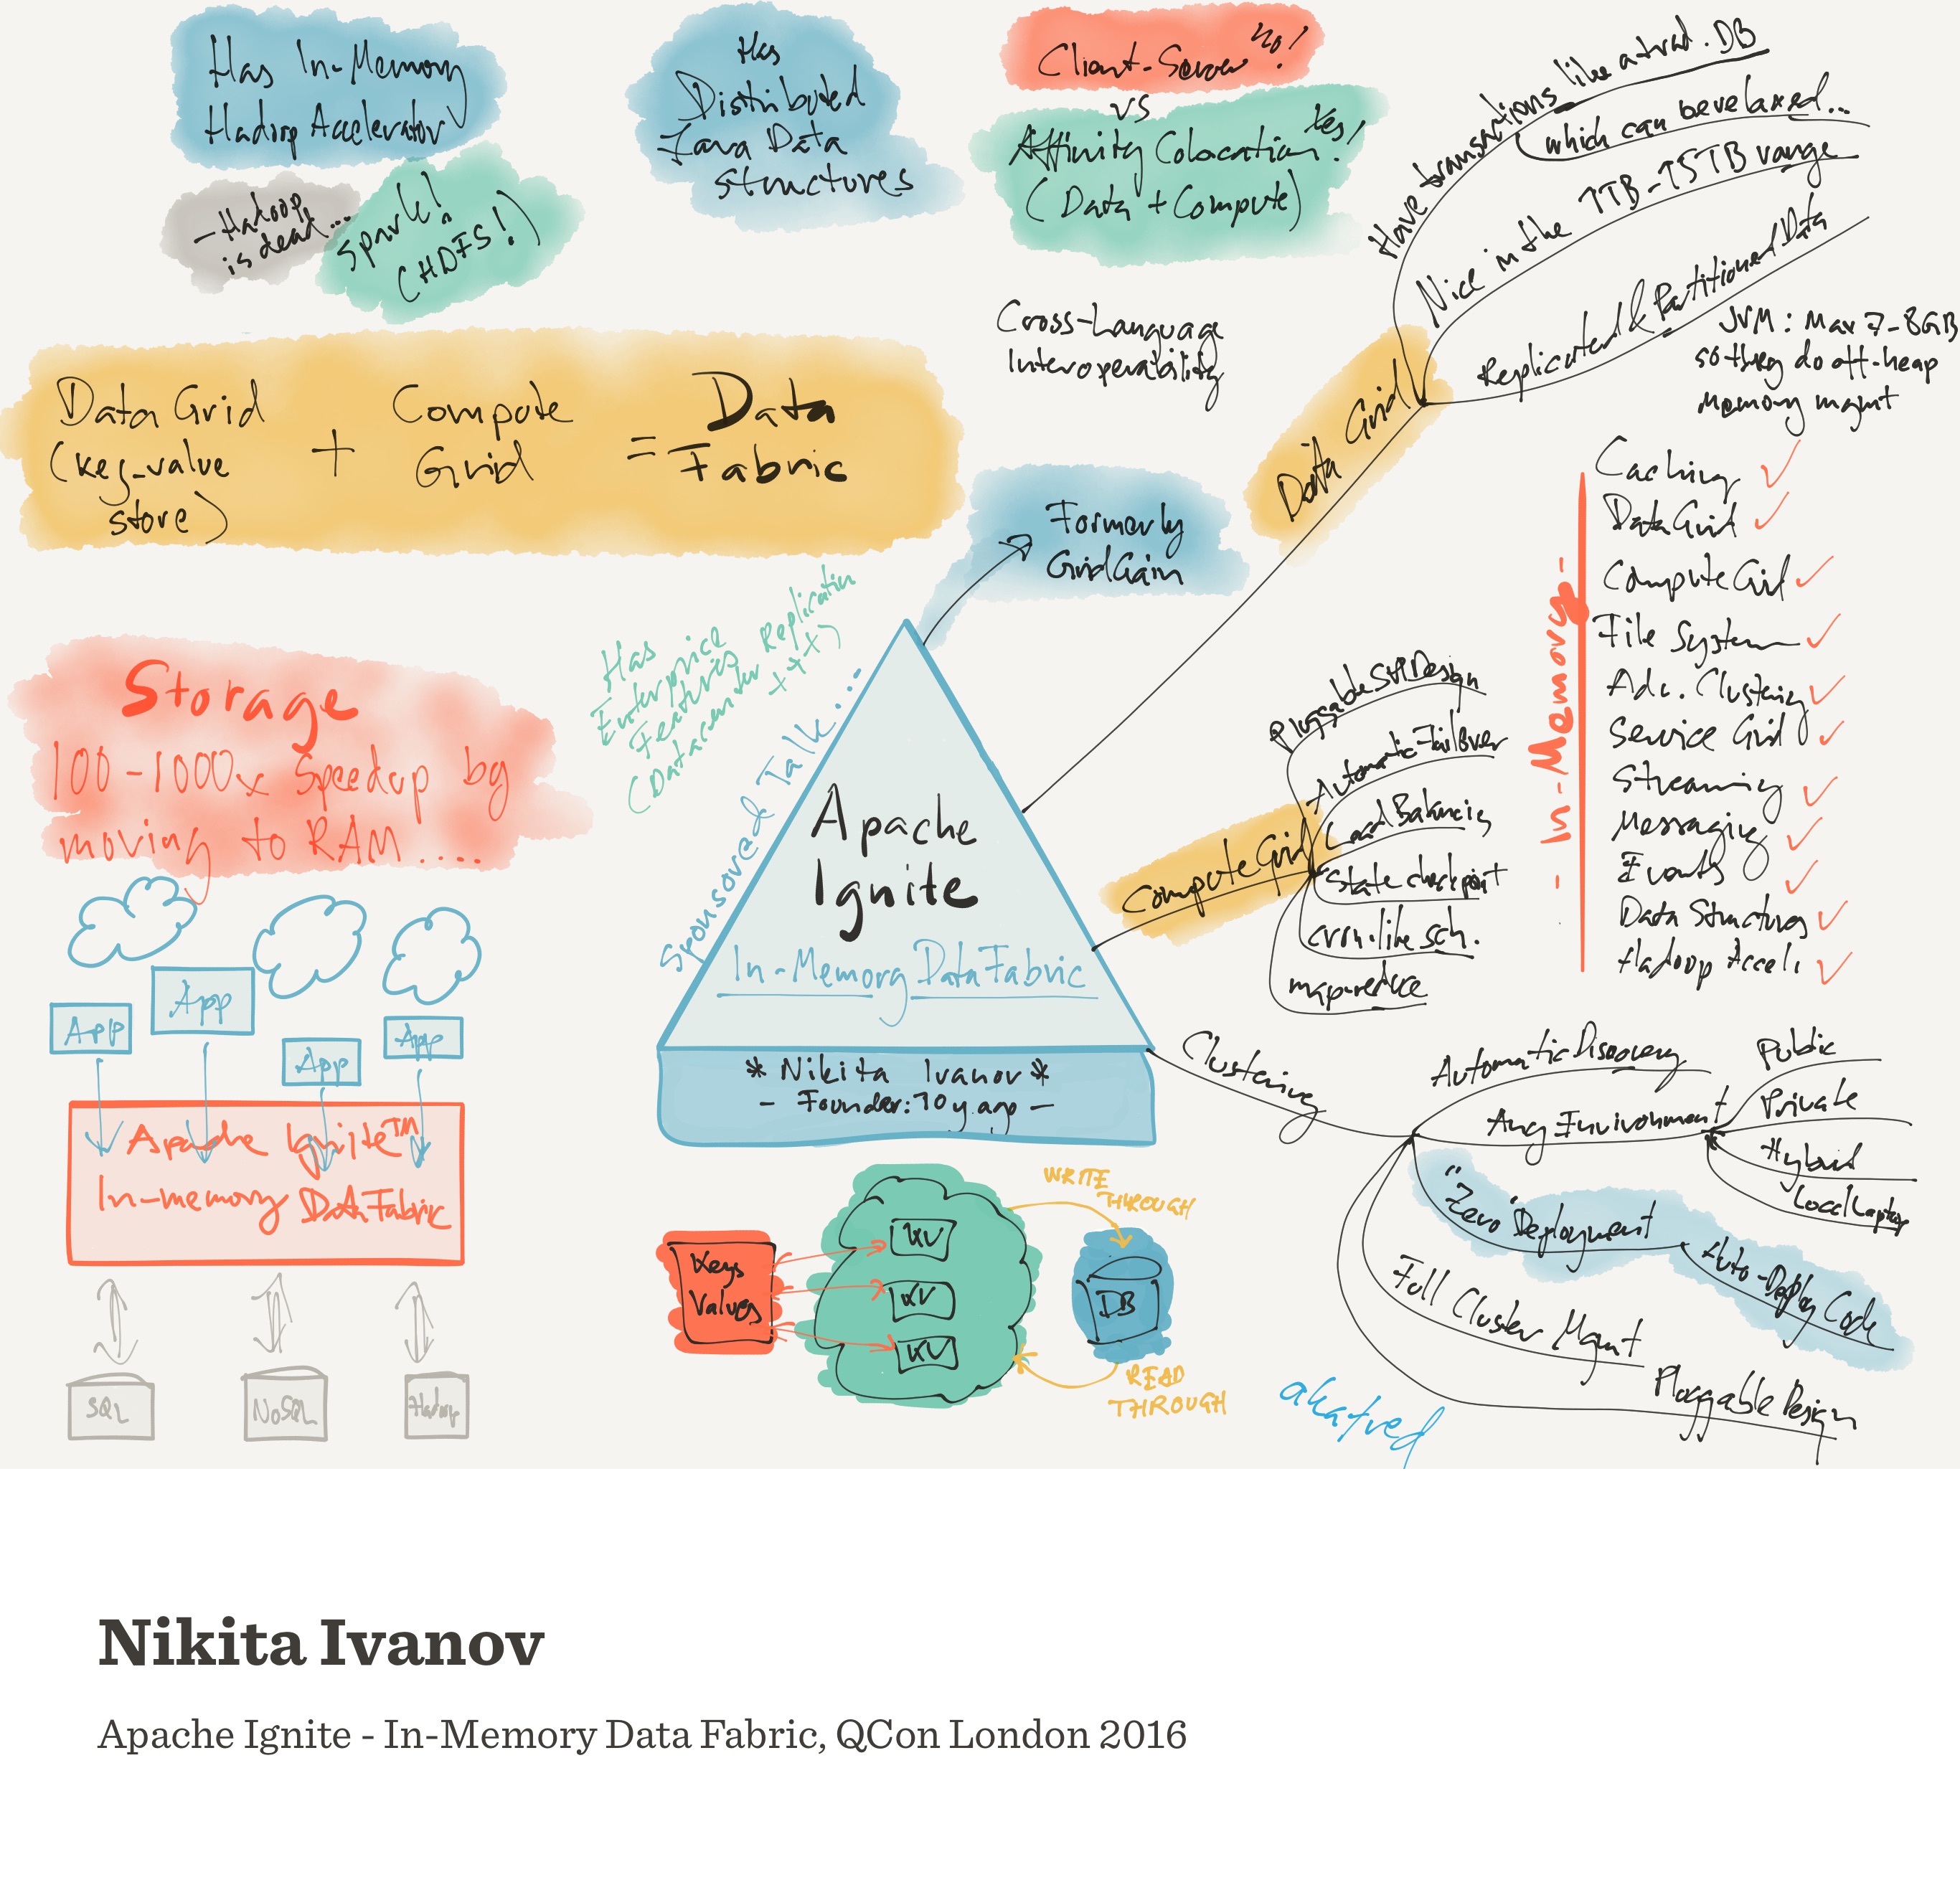 Has In-Memory
Hadoop Accelerator
- Hadoop
is dead...
Spark!
(HDFS!)
Has
Distributed
Java Data
structures
Client-Server no!
vs
Affinity Colocation. Yes!
(Data + Compute)
Cross-Language
Interoperability
Data Grid
(key-value
store)
+
Compute
Grid
=
Data
Fabric
Formerly
GridGain
Data Grid
Have transactions like a trad. DB
which can be relaxed...
Nice in the 1TB-15TB range
Replicated & Partitioned Data
JVM: Max 7-8GB
so they do off-heap
memory mgmt
- In-Memory -
Caching ✓
Data Grid ✓
Compute Grid ✓
File System ✓
Adv. Clustering ✓
Service Grid ✓
Streaming ✓
Messaging ✓
Events ✓
Data Structures ✓
Hadoop Accel. ✓
Storage
100-1000x Speedup by
moving to RAM....
Has
Enterprice
Features
(Datacenter Replication
+++)
Sponsored Talk...
Apache
Ignite
In-Memory Data Fabric
* Nikita Ivanov *
- Founder: 10 y ago -
Compute Grid
Pluggable SPI Design
Automatic Failover
Load Balancing
State checkpoint
cron-like sch.
map-reduce
App
App
App
App
Apache Ignite™
In-memory Data Fabric
SQL
NoSQL
Hadoop
Keys
Values
KV
KV
KV
WRITE
THROUGH
DB
READ
THROUGH
Clustering
Automatic Discovery
Any Environment
Public
Private
Hybrid
Local Laptop
"Zero" Deployment
Auto-Deploy Code
Full Cluster Mgmt
Pluggable Design
akatred
Nikita Ivanov
Apache Ignite - In-Memory Data Fabric, QCon London 2016